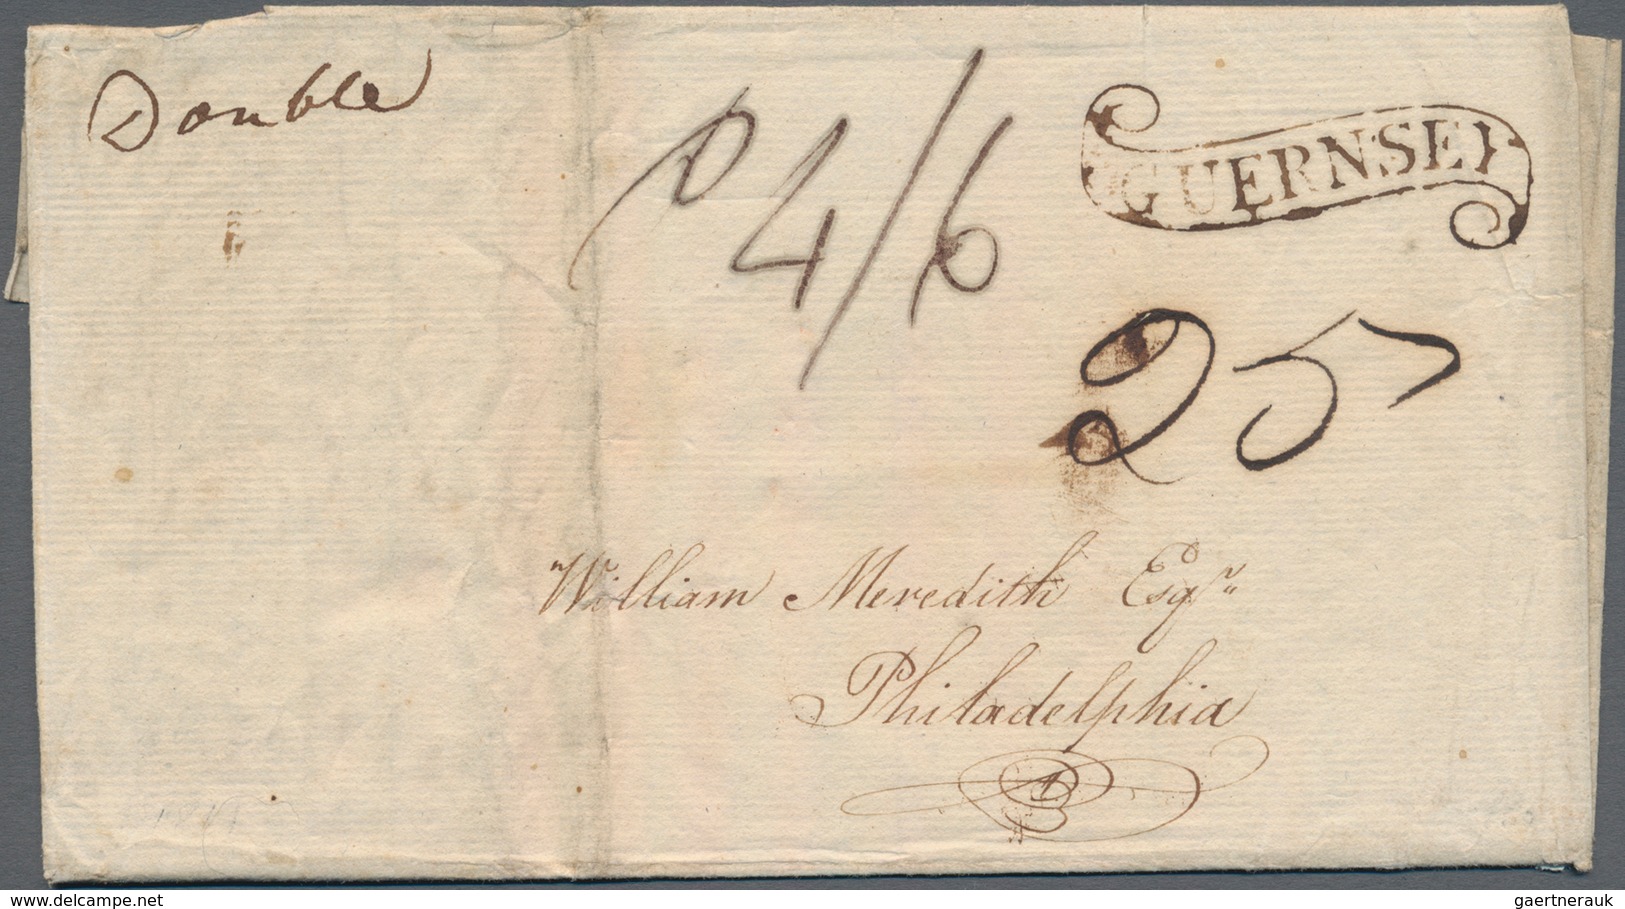 Double
P 4/6
GUERNSEY
25
William Meredith Esqr
Philadelphia
delcampe.net
gaertnerauk